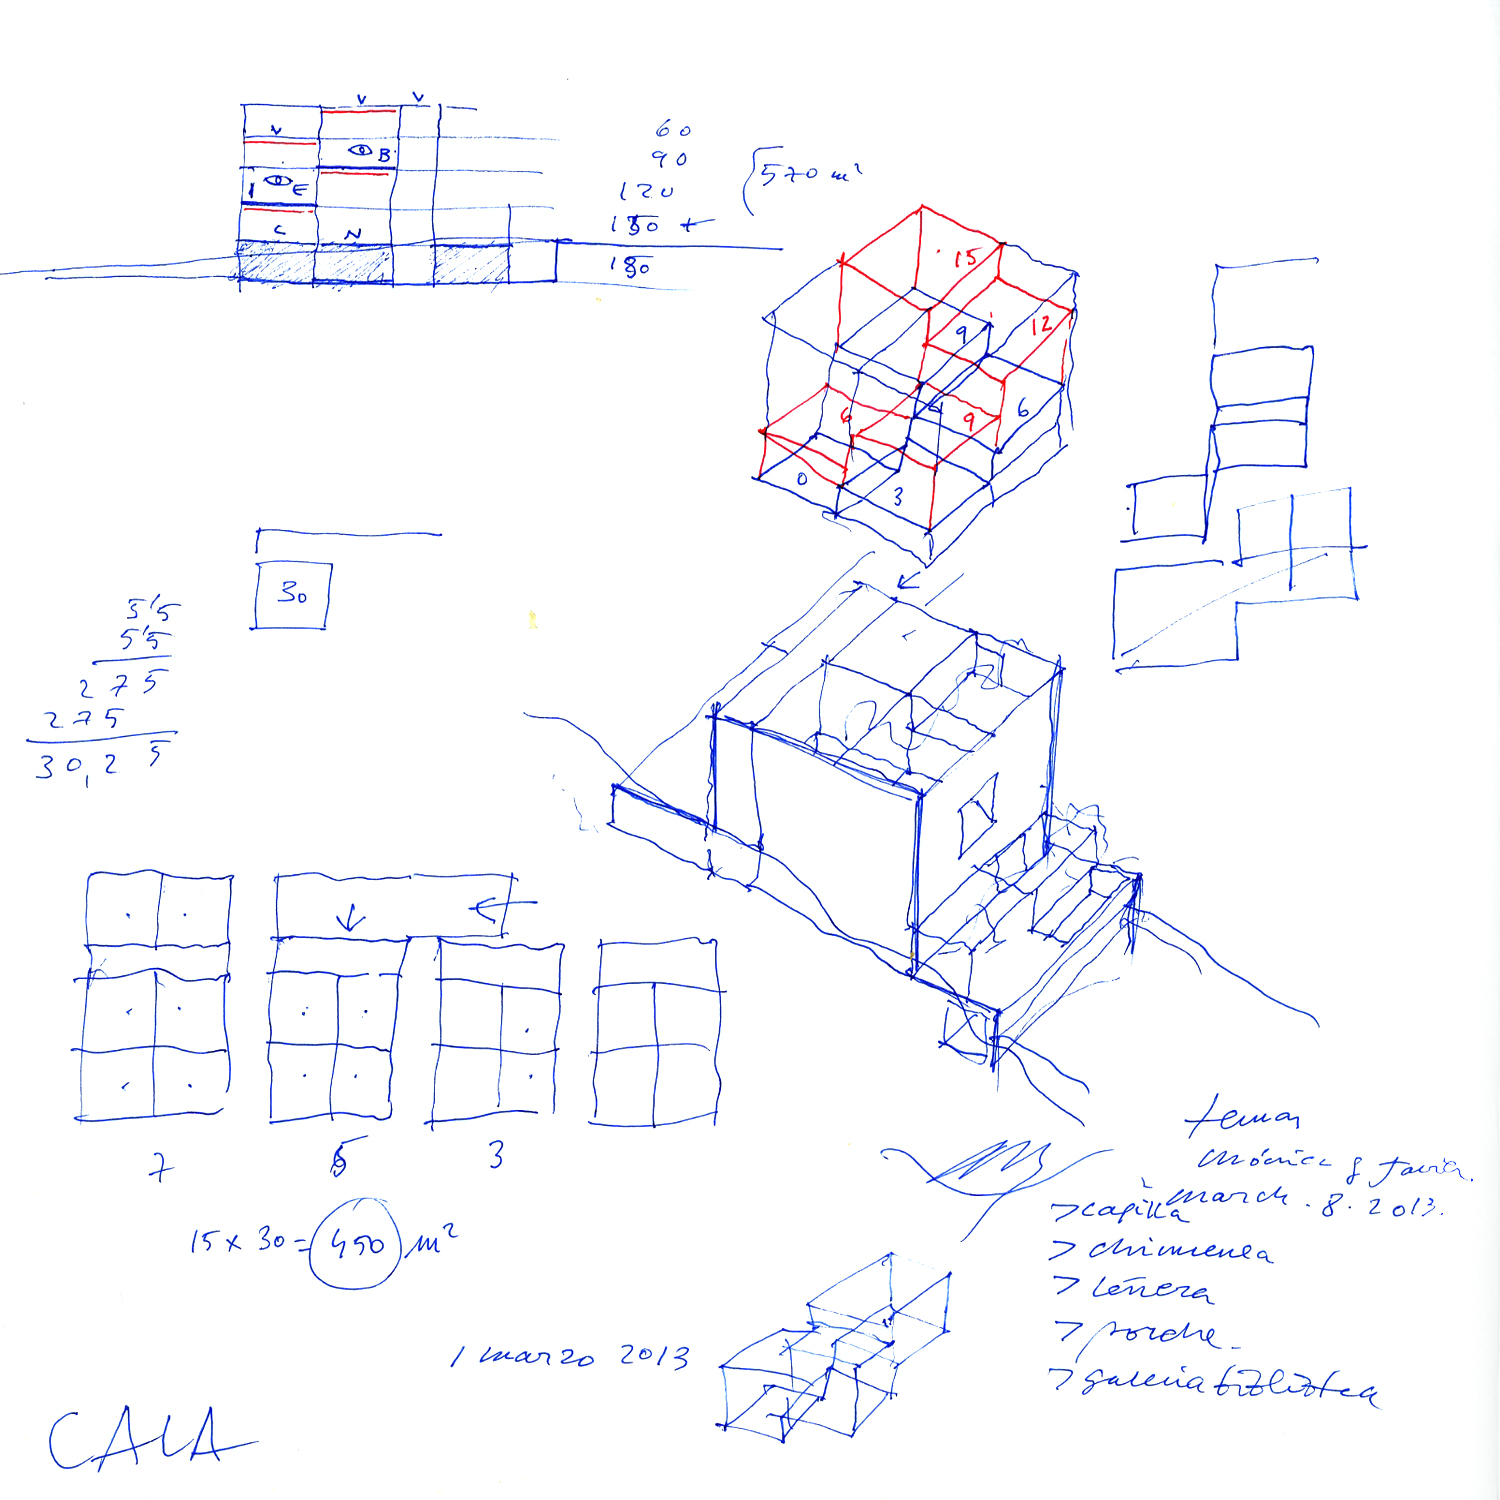 V
V
V
B
I
E
C
N
60
90
120
150 +
180
570 m²
15
12
9
6
9
6
0
3
30
5'5
5'5
275
275
30,25
7
5
3
15 x 30 = 450 m²
temas
Mónica & Javier.
march . 8 . 2013.
> capilla
> chimenea
> leñera
> porche.
> galeria biblioteca
1 marzo 2013
CALA